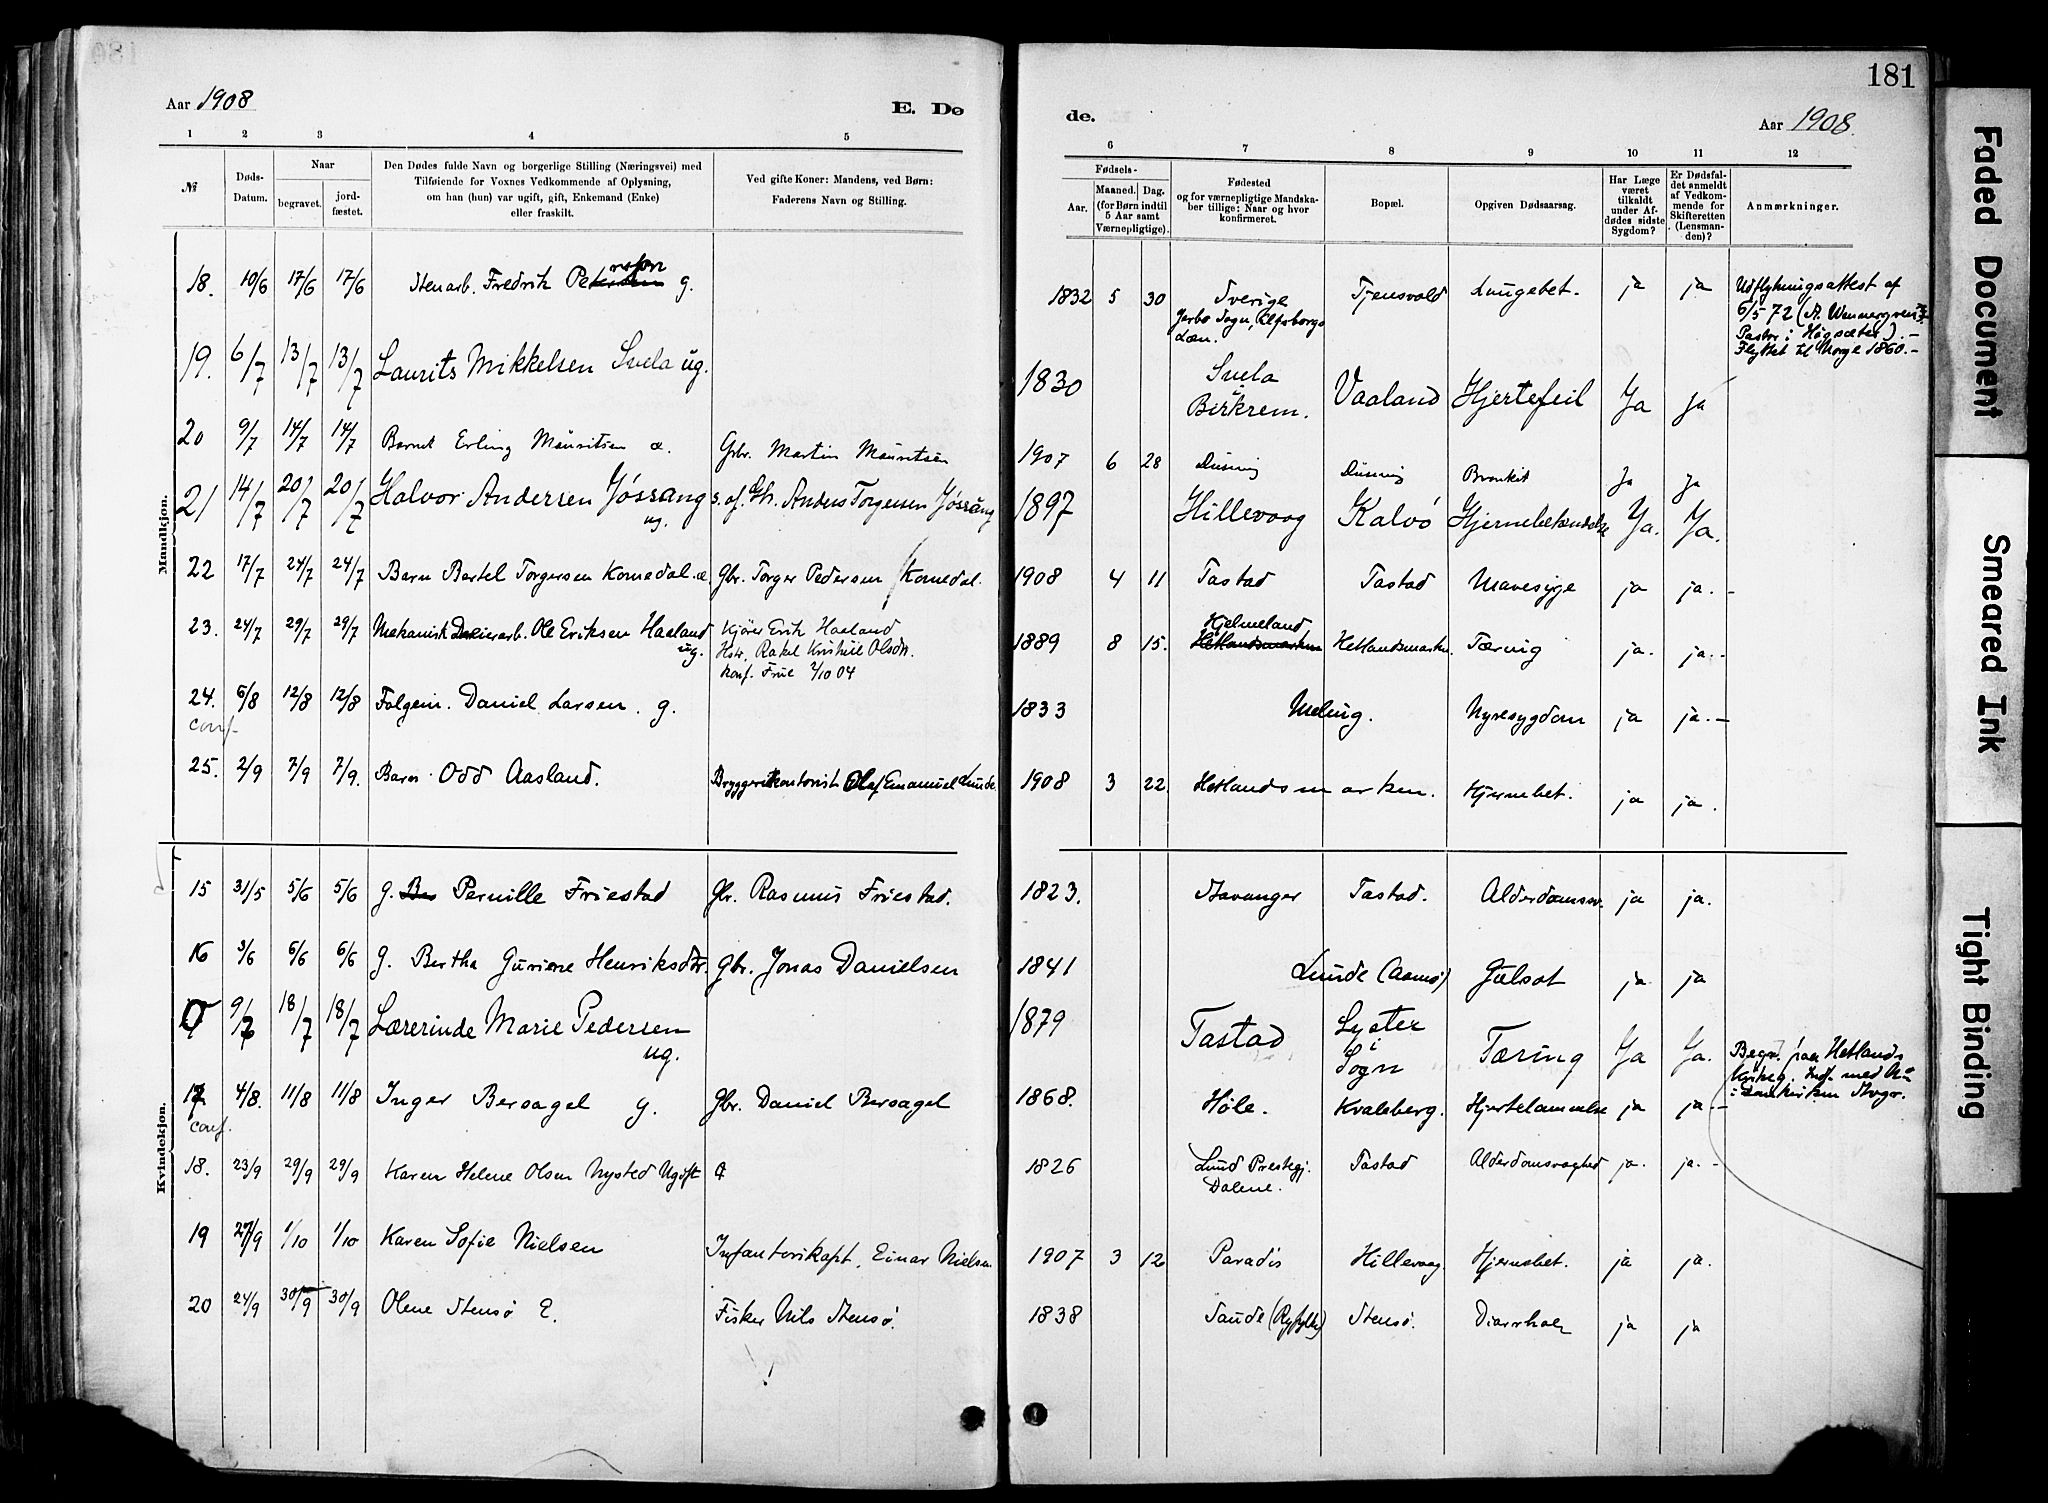 181
Aar 1908
E. Dø
de.
Aar 1908.
1 2 3 4 5 6 7 8 9 10 11 12
№
Døds-
Datum.
Naar
begravet.
jord-
fæstet.
Den Dødes fulde Navn og borgerlige Stilling (Næringsvei) med
Tilføiende for Voxnes Vedkommende af Oplysning,
om han (hun) var ugift, gift, Enkemand (Enke)
eller fraskilt.
Ved gifte Koner: Mandens, ved Børn:
Faderens Navn og Stilling.
Fødsels-
Aar.
Maaned.
Dag.
(for Børn indtil
5 Aar samt
Værnepligtige).
Fødested
og for værnepligtige Mandska-
ber tillige: Naar og hvor
konfirmeret.
Bopæl.
Opgiven Dødsaarsag.
Har Læge
været
tilkaldt
under Af-
dødes sidste
Sygdom?
Er Dødsfal-
det anmeldt
af Vedkom-
mende for
Skifteretten
(Lensman-
den)?
Anmærkninger.
Mandkjøn.
18. 10/6 17/6 17/6 Stenarb. Fredrik Petersson g. 1832 5 30 Sverige Tjensvold Lungebet. ja ja Udflytningsattest af
Jerbo Sogn, Elfsborgs 6/5 72 (A. Wennergren
Læn. Pastor i Högsäter). –
Flyttet til Norge 1860. –
19. 6/7 13/7 13/7 Laurits Mikkelsen Svela ug. 1830 Svela
i
Birkrem. Vaaland Hjertefeil Ja ja
20 9/7 14/7 14/7 Barnet Erling Mauritsen æ. Gbr. Martin Mauritsen 1907 6 28 Dusevig Dusevig Bronkit Ja ja
21 14/7 20/7 20/7 Halvor Andersen Jøssang ug. s. af. Gb. Anders Torgersen Jøssang 1897 Hillevaag Kalvø Hjernebetændelse Ja. Ja.
22 17/7 24/7 24/7 Barn Bertel Torgersen Komedal. æ. Gbr. Torger Pedersen Komedal. 1908 4 11 Tastad Tastad Mavesyge ja ja. –
23. 24/7 29/7 29/7 Mekanisk Dreierarb. Ole Eriksen Haaland ug. Kjører Erik Haaland
Hstr. Rakel Kristine Olsdtr.
konf. Frue 2/10 04 1889 8 15. Hjelmeland
Hetlandsmarken Hetlandsmarken. Tæring ja. ja. –
24. 6/8 12/8 12/8 Folgem. Daniel Larsen. g. 1833 Meling. Nyresygdom ja ja. –
conf.
25. 2/9 7/9 7/9. Barn Odd Aasland. Bryggerikontorist Olaf Emanuel Lunde. 1908 3 22. Hetlandsmarken. Hjernebet. ja ja.
Kvindekjøn.
15 31/5 5/6 5/6 g. Pernille Friestad Gbr. Rasmus Friestad. 1823. Stavanger Tastad. Alderdomssv. ja ja.
16 3/6 6/6 6/6 g. Bertha Guriene Henriksdtr. Gbr. Jonas Danielsen 1841 Lunde (Aamø) Gulsot ja ja
0 9/7 18/7 18/7 Lærerinde Marie Pedersen ug. 1879 Tastad Lyster
i
Sogn Tæring Ja Ja. Begr. paa Hetlands
Kirkeg. Indf. med No
i Domkirken Stvgr.
17 4/8. 11/8 11/8 Inger Bersagel g. Gbr. Daniel Bersagel 1868. Høle. Kvaleberg. Hjertelammelse ja ja. –
conf.
18. 23/9 29/9 29/9 Karen Helene Olsen Nysted Ugift 1826 Lund Prestegj.
Dalene. Tastad Alderdomsvaghed ja. ja. –
19 27/9 1/10 1/10 Karen Sofie Nielsen Infanterikapt. Einar Nielsen. 1907 3 12 Paradis Hillevaag Hjernebet. ja ja.
20 24/9 30/9 30/9 Olene Stensø E. Fisker Nils Stensø. 1838 Saude (Ryfylke) Stensø. Diarrhoe ja ja
Faded Document
Smeared Ink
Tight Binding